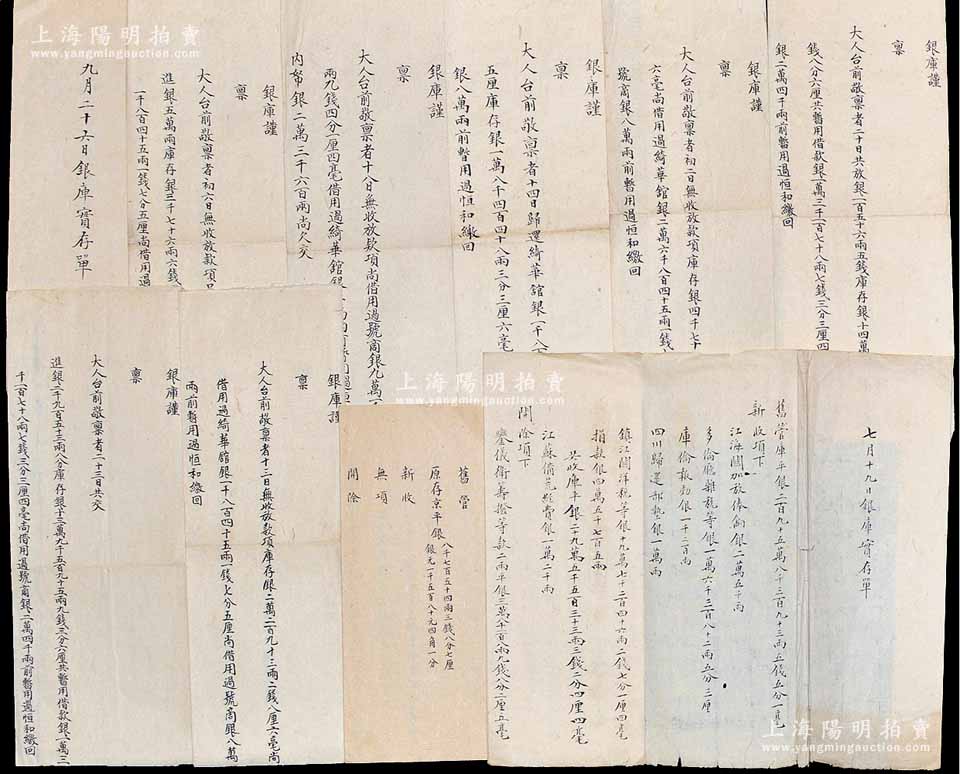 銀庫謹
稟
大人台前敬稟者二十日共放銀一百五十六兩五錢庫存銀十四萬
錢八分六厘共暫用借款銀一萬三千一百七十八兩七錢三分三厘四
銀二萬四千兩前暫用過恒和繳回
銀庫謹
稟
大人台前敬稟者初二日無收放款項庫存銀四千七十
六毫尚借用過綺華館銀二萬六千八百四十五兩一錢
號商銀八萬兩前暫用過恒和繳回
銀庫謹
稟
大人台前敬稟者十四日歸還綺華館銀一千八
五厘庫存銀一萬八千四百四十八兩三分三厘六毫
銀八萬兩前暫用過恒和繳回
銀庫謹
稟
大人台前敬稟者十八日無收放款項尚借用過號商銀九萬
兩九錢四分一厘四毫借用過綺華館銀
內帑銀二萬三千六百兩尚欠交
銀庫謹
稟
大人台前敬稟者初六日無收放款項
進銀五萬兩庫存銀三千七十六兩六錢
一千八百四十五兩一錢七分五厘尚借用過
九月二十六日銀庫實存單
七月十九日銀庫實存單
舊管庫平銀二百九十五萬八千三百九十三兩五錢五分一毫
新收項下
江海關加放俸餉銀二萬五千兩
多倫廳雜稅等銀一萬六千三百八十二兩五分三厘
庫倫報効銀一千二百兩
四川歸還部墊銀一萬兩
鎮江關洋稅等銀十九萬七千二百四十六兩二錢七分一厘四毫
捐款銀四萬五千七百五兩
共收庫平銀二十九萬五千五百三十三兩三錢二分四厘四毫
江蘇備荒經費銀一萬二千兩
開除項下
鑾儀衛等撥等款二兩平銀三萬六千二百兩九錢八分二厘五毫
舊管
原存京平銀八千七百五十四兩三錢八分七厘
銀元一千五百八十元四角一分
新收
無項
開除
銀庫謹
稟
大人台前敬稟者十三日無收放款項庫存銀二萬二百九十三兩二錢八厘六毫尚
借用過綺華館銀一千八百四十五兩一錢七分五厘尚借用過號商銀八萬
兩前暫用過恒和繳回
銀庫謹
稟
大人台前敬稟者二十三日共交
進銀二千九百五十三兩八分庫存銀十三萬九千五百九十五兩九錢三分六厘共暫用借款銀一萬三
千一百七十八兩七錢三分三厘四毫尚借用過號商銀二萬四千兩前暫用過恒和繳回
上海陽明拍賣
www.yangmingauction.com
上海陽明拍賣
www.yangmingauction.com
上海陽明拍賣
www.yangmingauction.com
上海陽明拍賣
www.yangmingauction.com